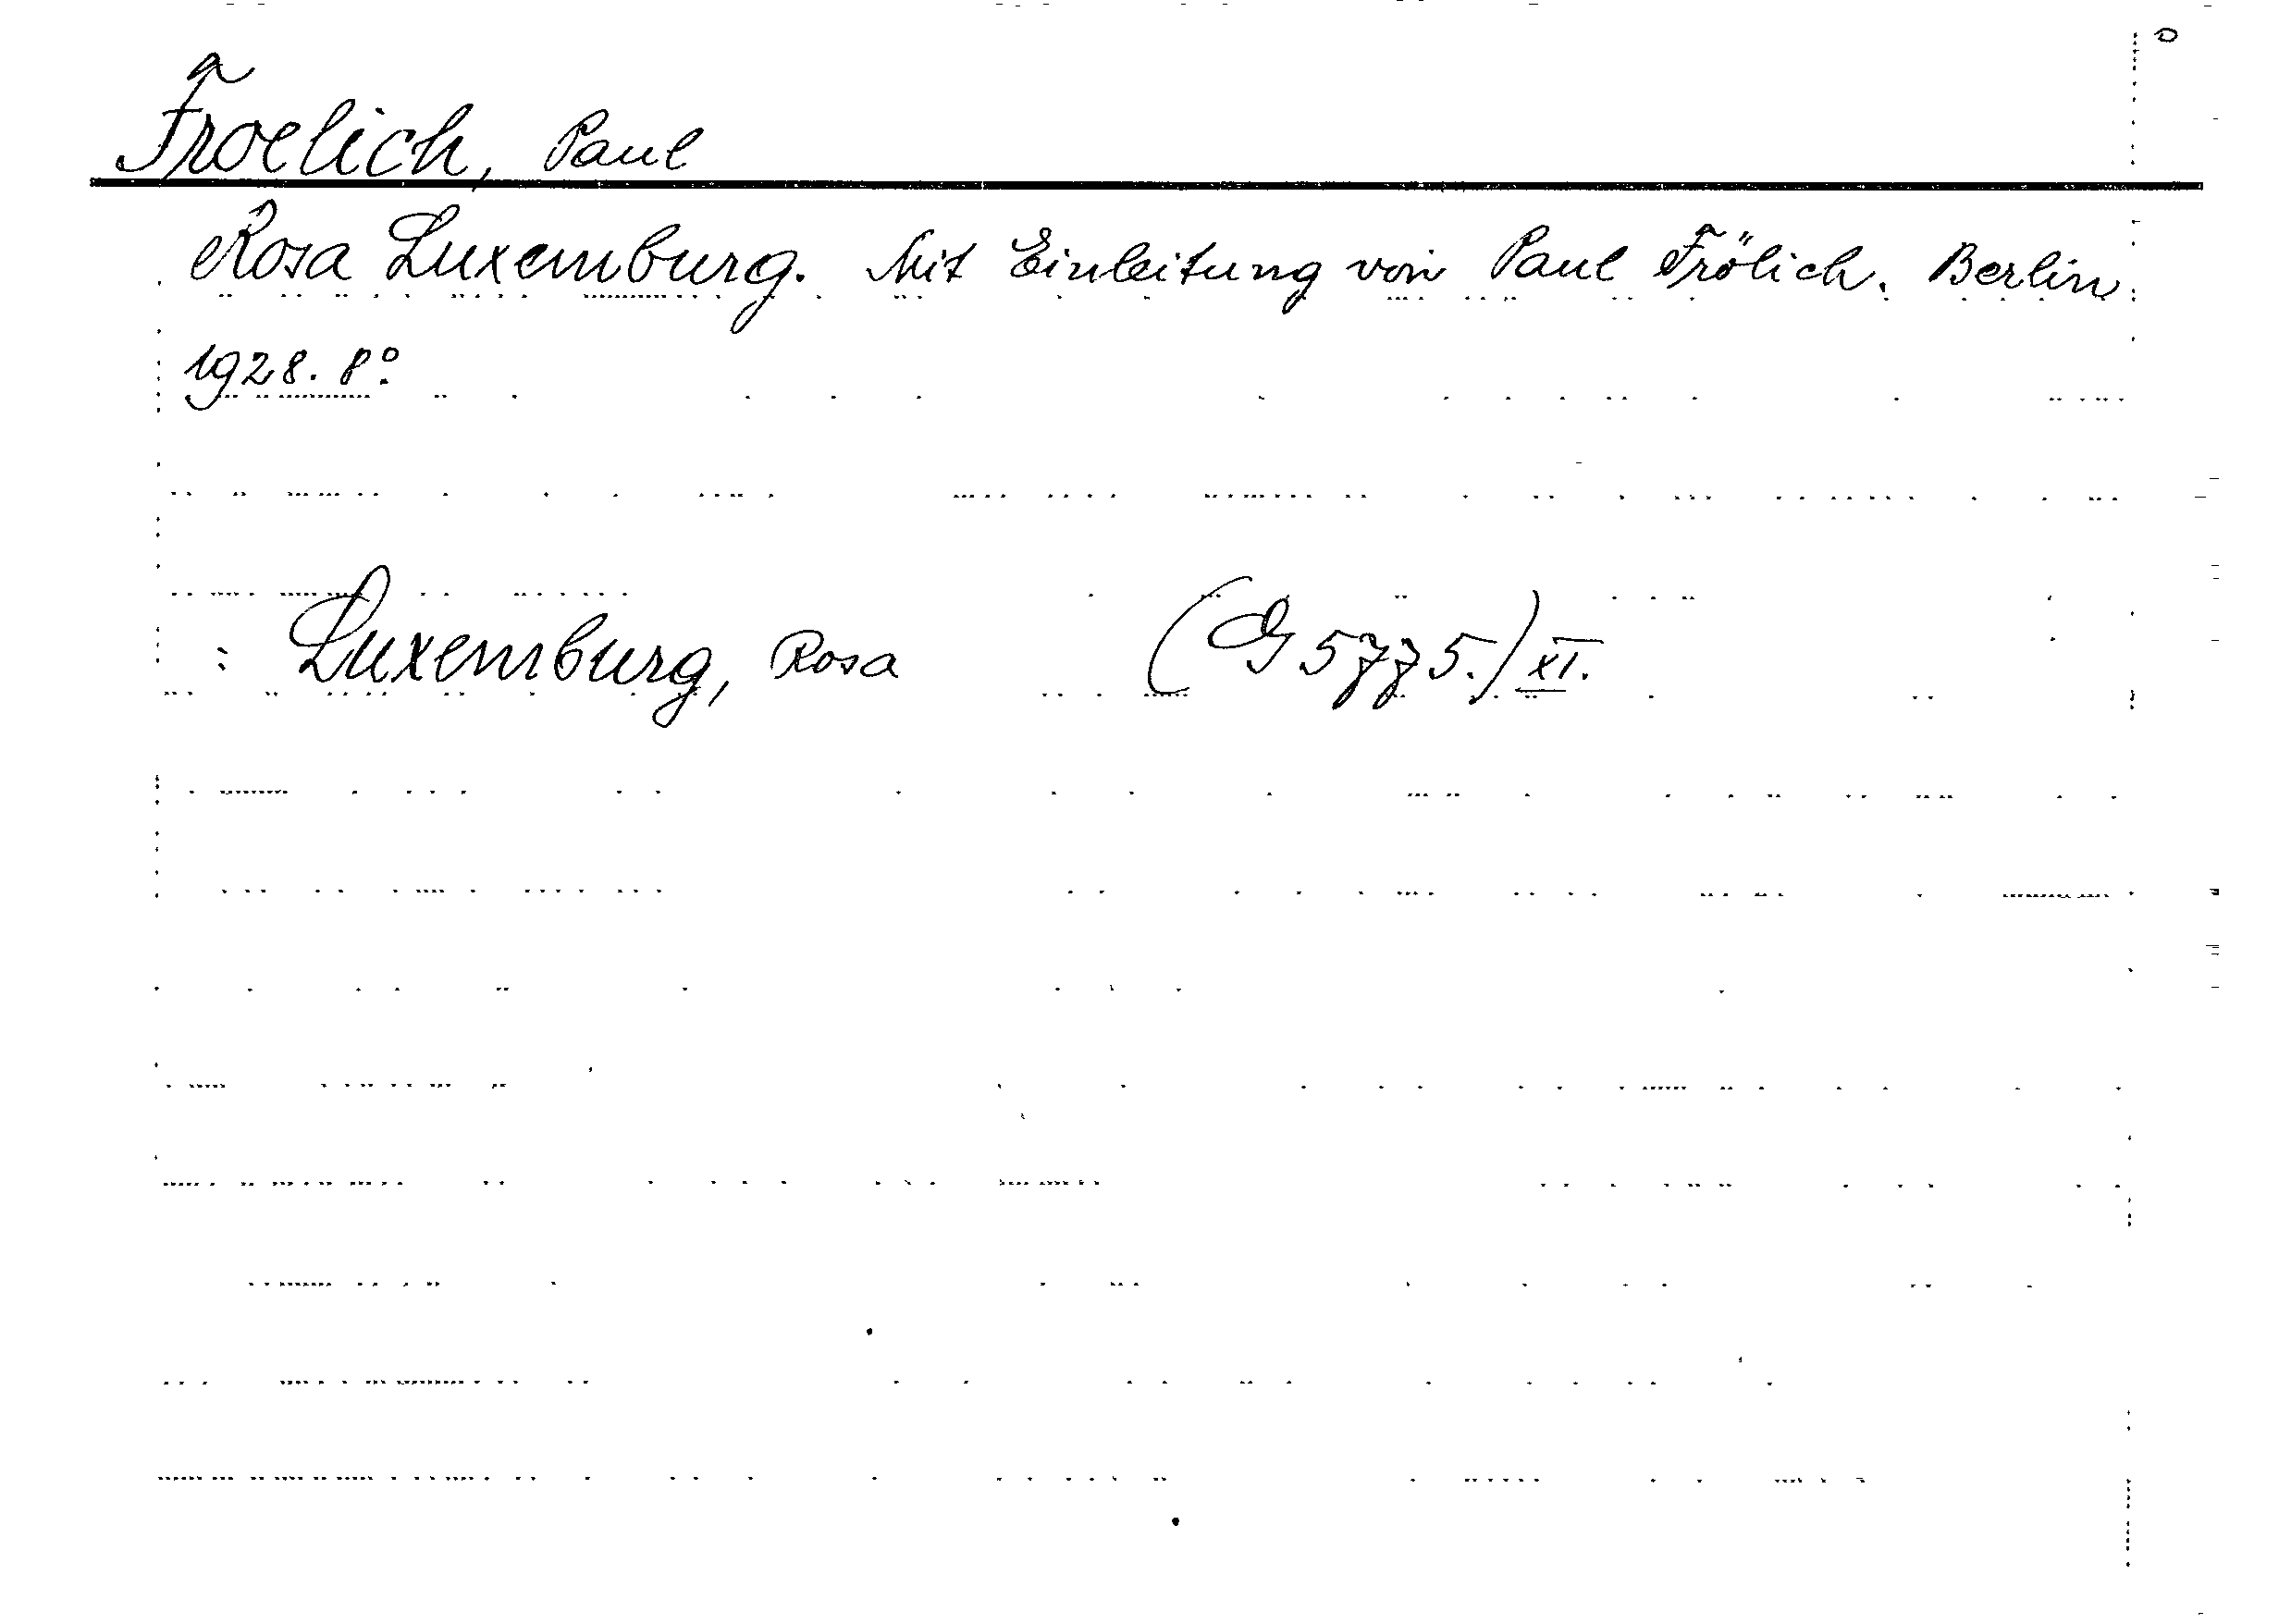 Froelich, Paul
Rosa Luxemburg. Mit Einleitung von Paul Frölich. Berlin
1928. 8°.
: Luxemburg, Rosa (G 5775.) XI.